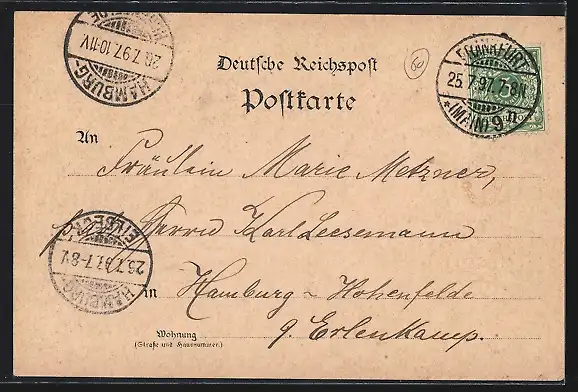 HAMBURG-
26.7.97.10-11V
Deutsche Reichspost
60
FRANKFURT
25.7.97.7-8N
* (MAIN) 9 n
Postkarte
An
Fräulein Marie Metzner,
Herrn Karl Leesemann
26.7.97.7-8V
HAMBURG
in Hamburg - Hohenfelde
9. Erlenkamp.
Wohnung
(Straße und Hausnummer.)